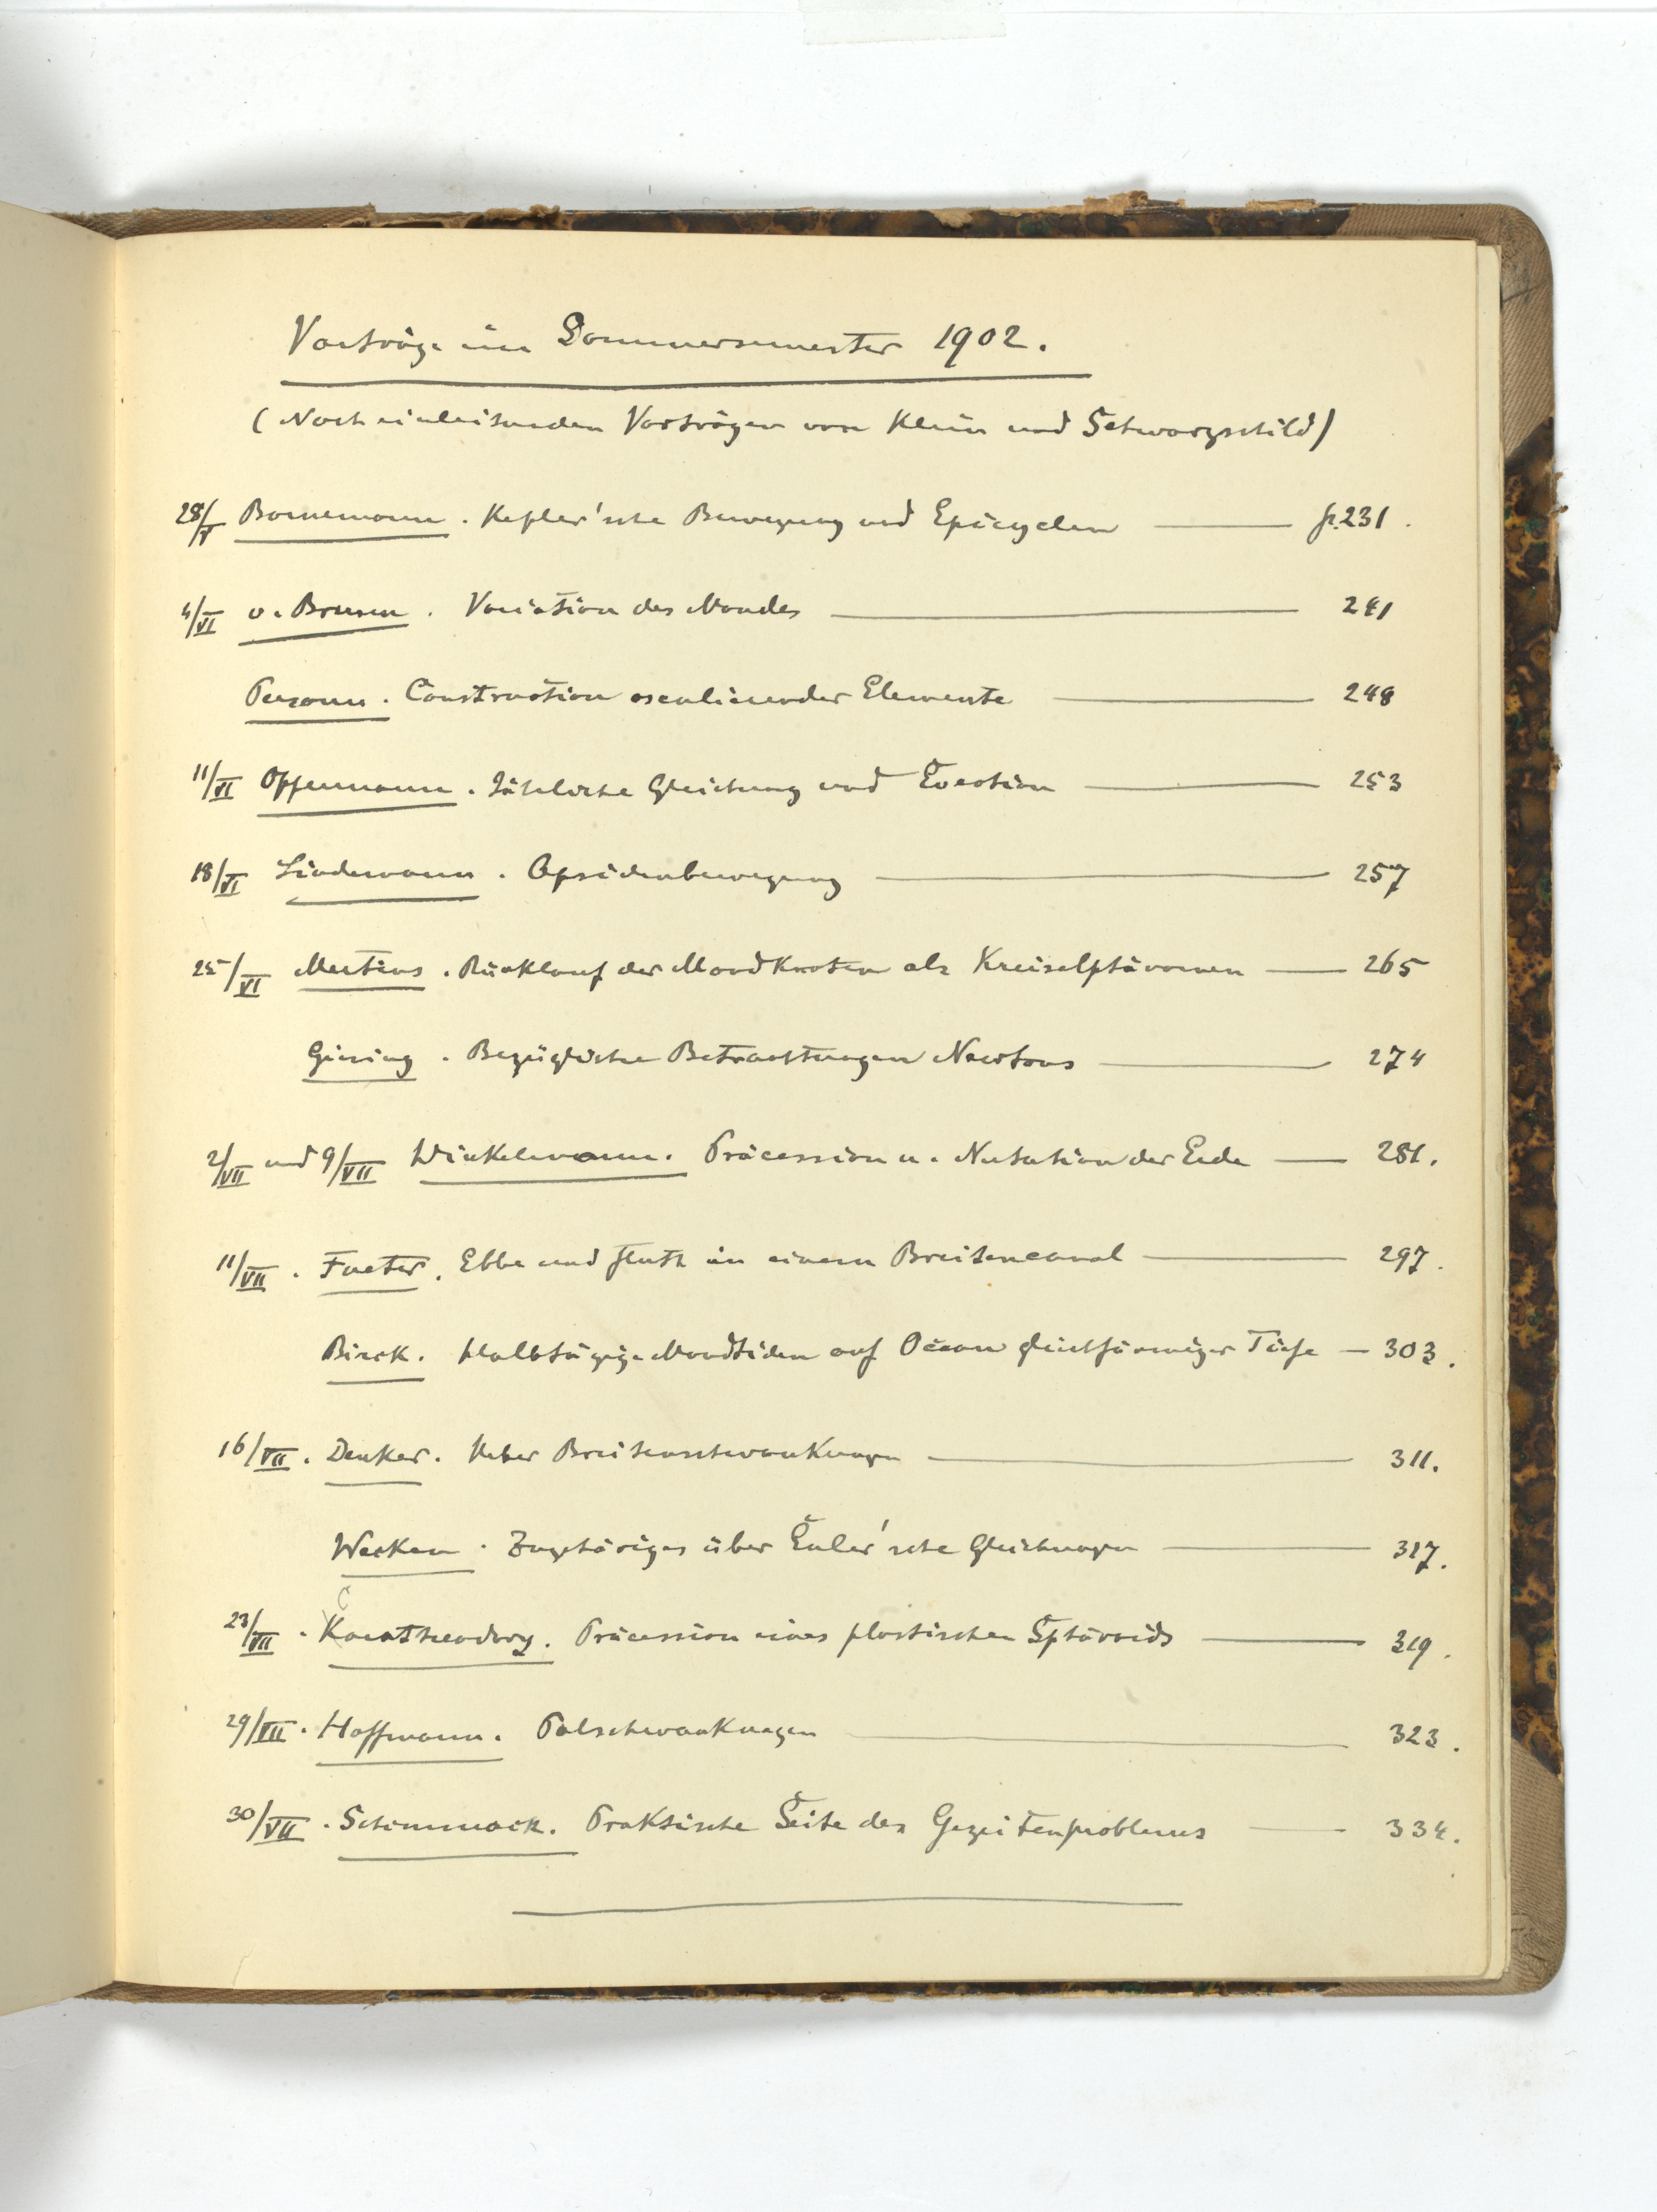 Vorträge im Sommersemester 1902.
(Nach einleitenden Vorträgen von Klein und Schwarzschild)
28/V Bornemann. Kepler'sche Bewegung und Epicyclen — p.231.
4/VI v. Brunn. Variation des Mondes — 241
Perron. Construction osculierender Elemente — 248
11/VI Offermann. Jährliche Gleichung und Evection — 253
18/VI Lindemann. Apsidenbewegung — 257
25/VI Mertins. Rücklauf der Mondknoten als Kreiselphänomen — 265
Giesing. Bezügliche Betrachtungen Newtons — 274
2/VII und 9/VII Winkelmann. Präcession u. Nutation der Erde — 281.
11/VII. Fueter. Ebbe und Fluth in einem Breitencanal — 297.
Birck. Halbtägige Mondtiden auf Ocean gleichförmiger Tiefe — 303.
16/VII. Denker. Ueber Breitenschwankungen — 311.
Wecken. Zugehöriges über Euler'sche Gleichungen — 317.
C
23/VII. Karatheodory. Präcession eines plastischen Sphäroids — 319.
29/VII. Hoffmann. Polschwankungen — 323.
30/VII. Schimmack. Praktische Seite des Gezeitenproblems — 334.